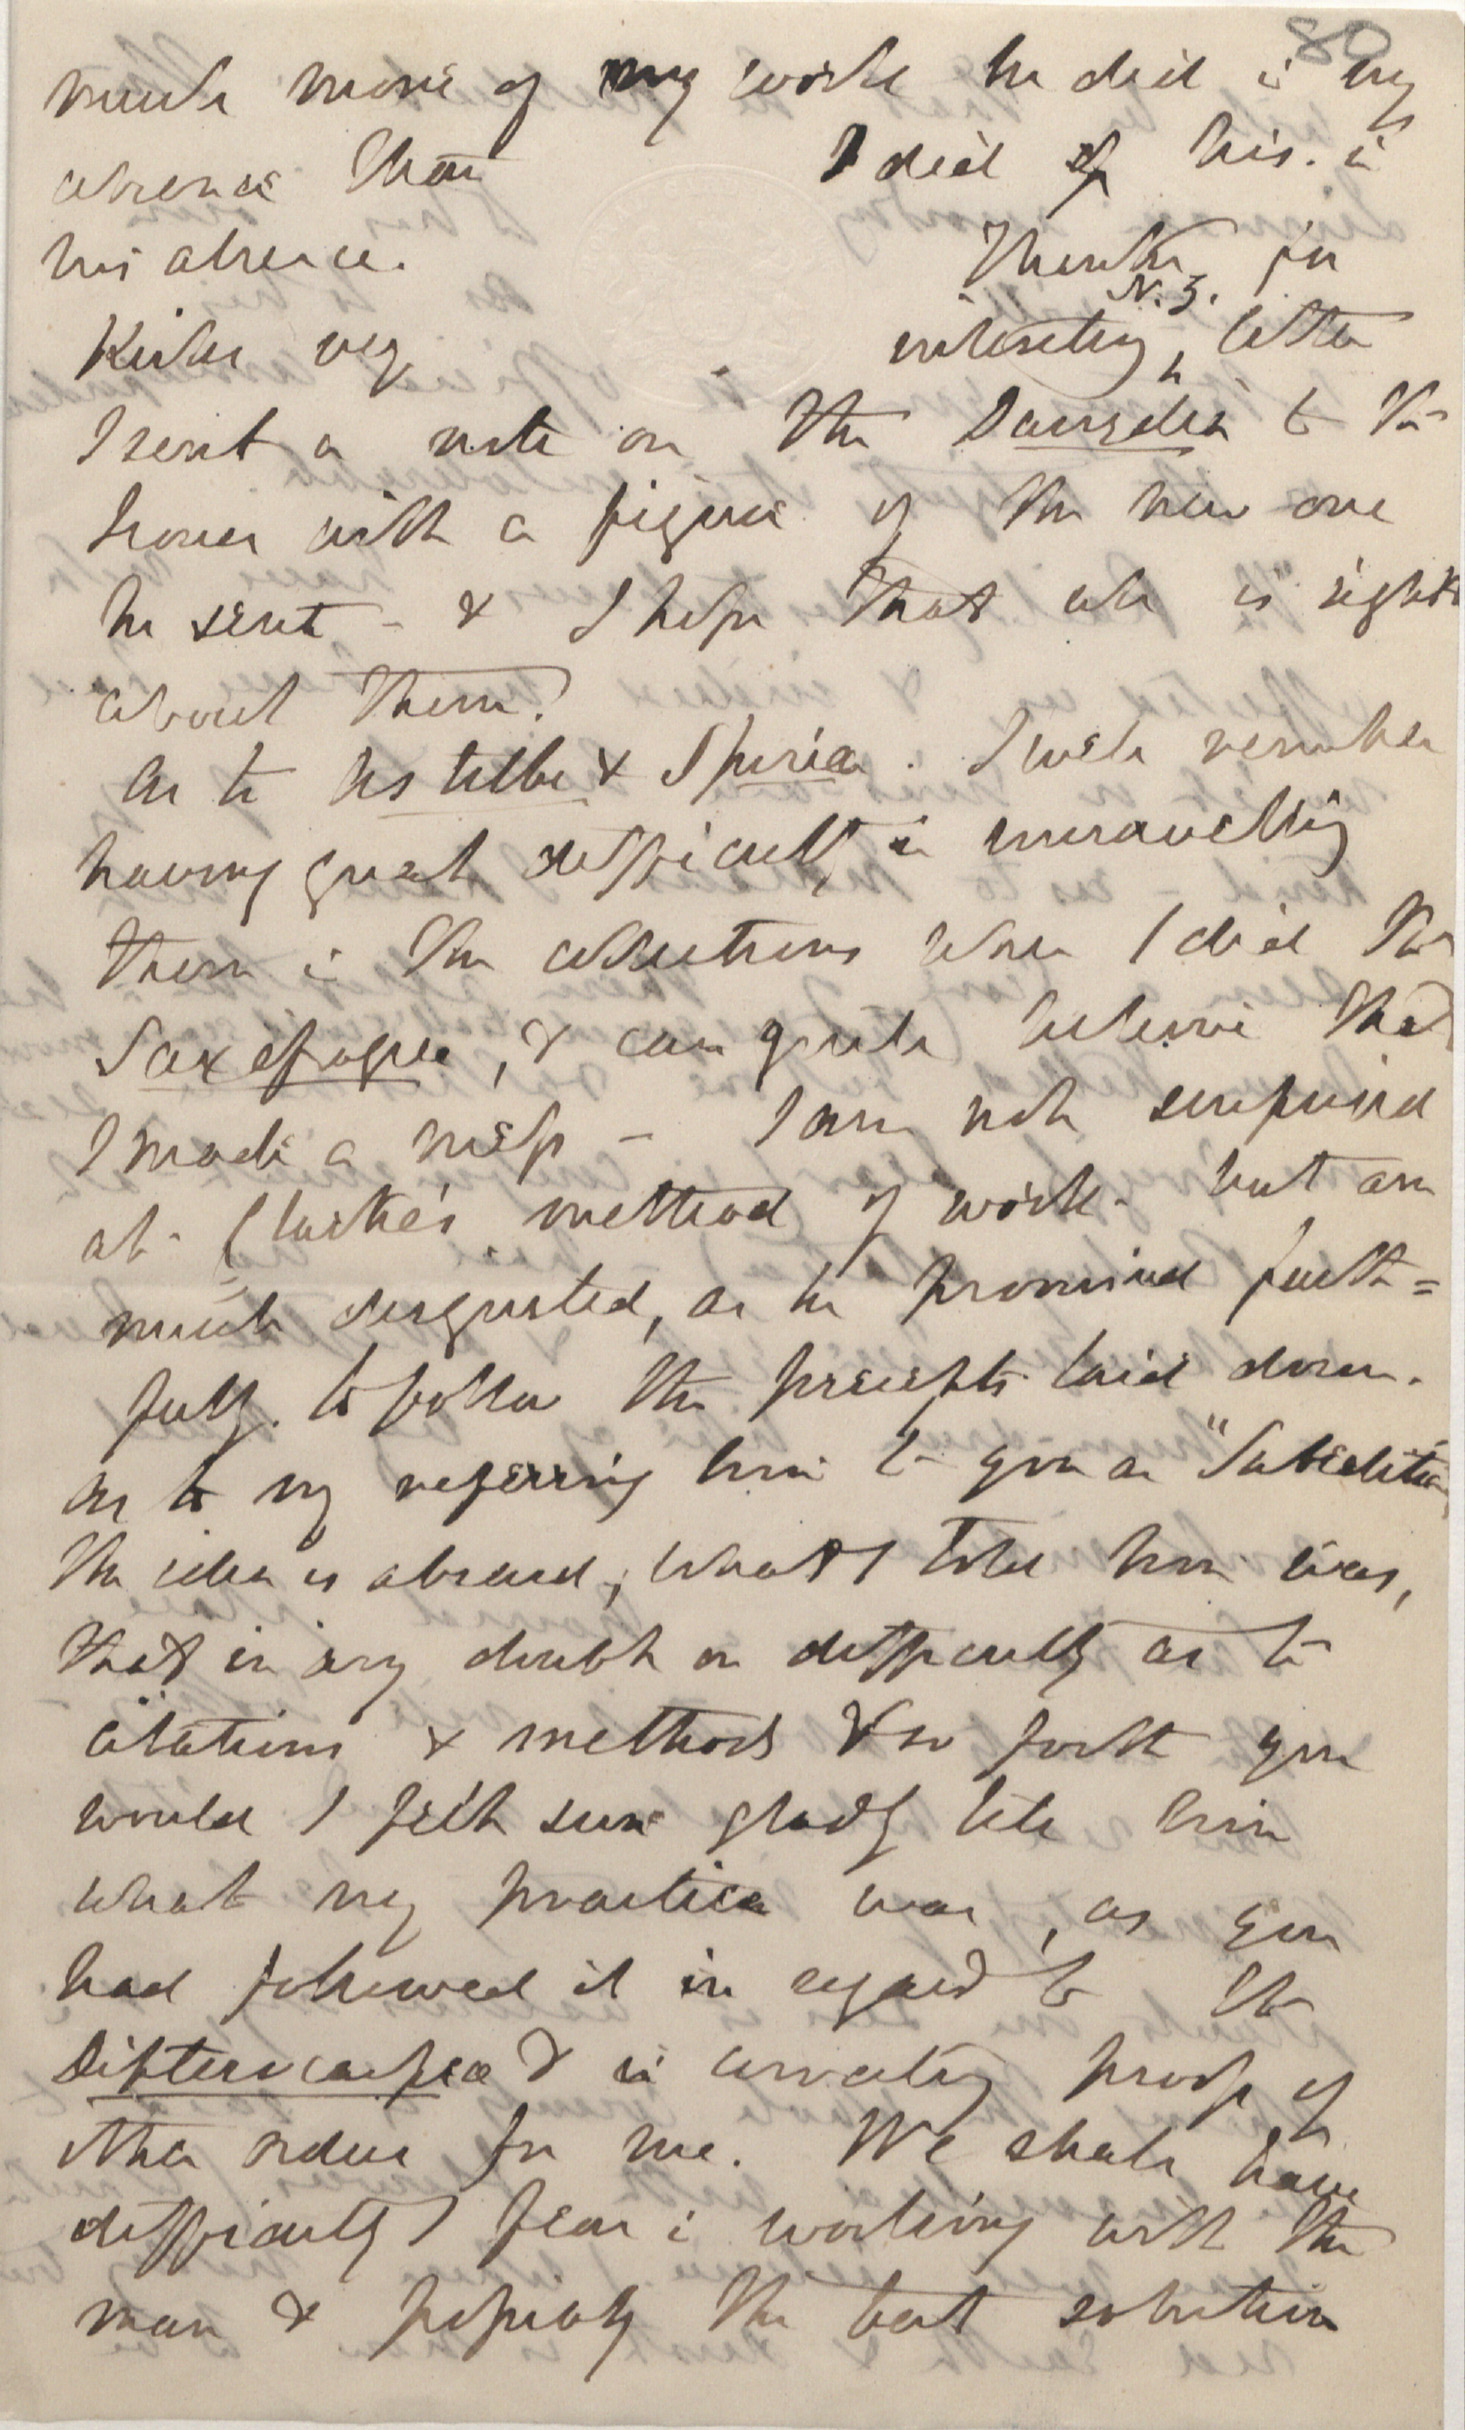 80
much more of my work he did in my
absence than I did of his. in
his absence. Thanks for
Kirk's interesting N.Z. letter
I sent a note on the to the
Linnean with a figure of the new one
he sent – & I hope that all is right
about them?
As to Astilbe & Spiræa. I well remember
having great difficulty in unravelling
them in the collections when I did the
Saxifrageæ, & can quite believe that
I made a mess – I am not surprised
at Clarke's method of work – but am
much disgusted, as he promised faith=
fully. to follow the precepts laid down.
As to my referring him to you as "Subeditor"
the idea is absurd, what I told him was,
that in any doubt or difficulty as to
citations & methods & so forth you
would I felt sure gladly tell him
what my practice was, as you
had followed it in regard to the
Dipterocarpeæ & in correcting proofs of
other orders for me. We shall have
difficulty I fear in working with the
man & possibly the best solution